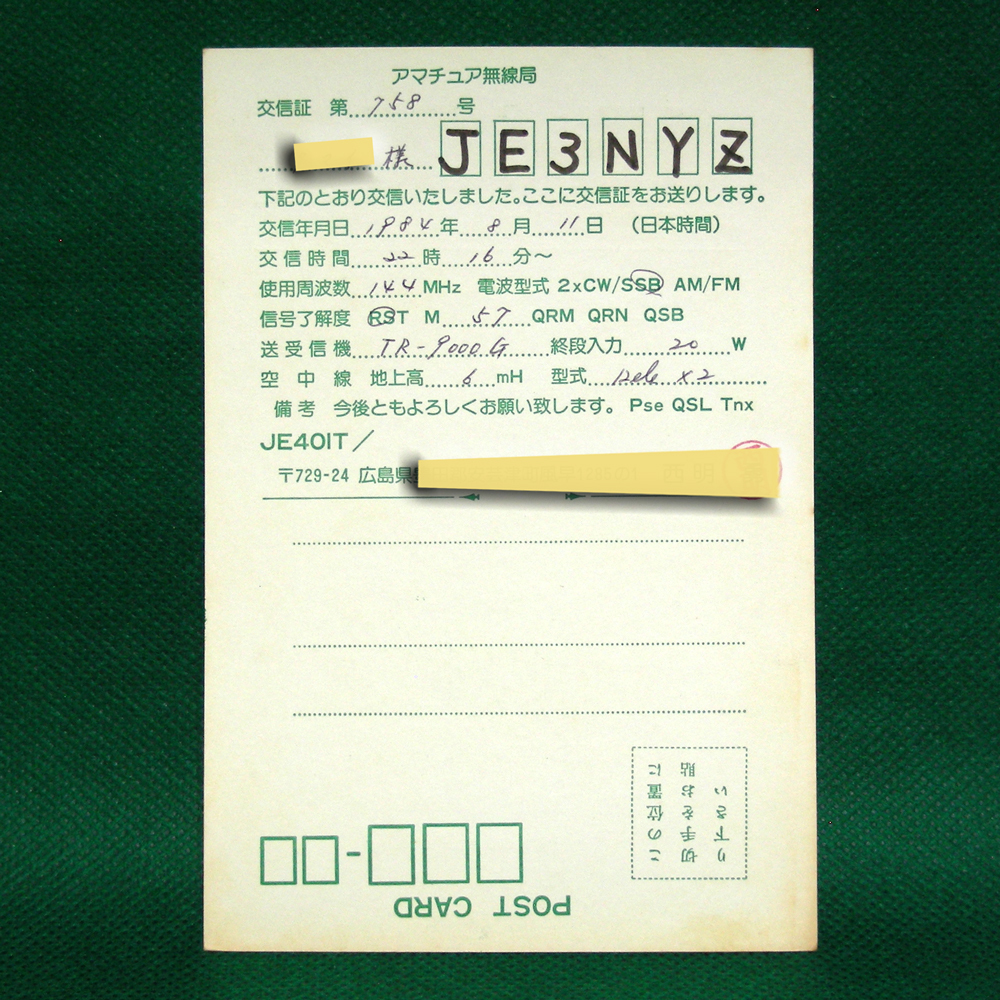 アマチュア無線局
交信証 第 758 号
様 JE3NYZ
下記のとおり交信いたしました。ここに交信証をお送りします。
交信年月日 1984 年 8 月 11 日 (日本時間)
交信時間 22 時 16 分～
使用周波数 144 MHz 電波型式 2xCW/SSB AM/FM
信号了解度 RST M 57 QRM QRN QSB
送受信機 TR-9000G 終段入力 20 W
空中線 地上高 6 mH 型式 Dele x2
備考 今後ともよろしくお願い致します。 Pse QSL Tnx
JE4OIT／
〒729-24 広島県
この位置に
切手をお貼
り下さい
POST CARD